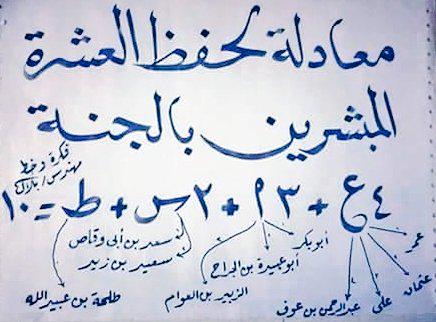 معادلة لحفظ العشرة
المبشرين بالجنة
فكرة وخط
مهندس/ بلال
٤ع + ٣أ + ٢س + ط = ١٠
عمر
عثمان
علي
عبدالرحمن بن عوف
أبو بكر
أبو عبيدة بن الجراح
الزبير بن العوام
سعد بن أبي وقاص
سعيد بن زيد
طلحة بن عبيد الله